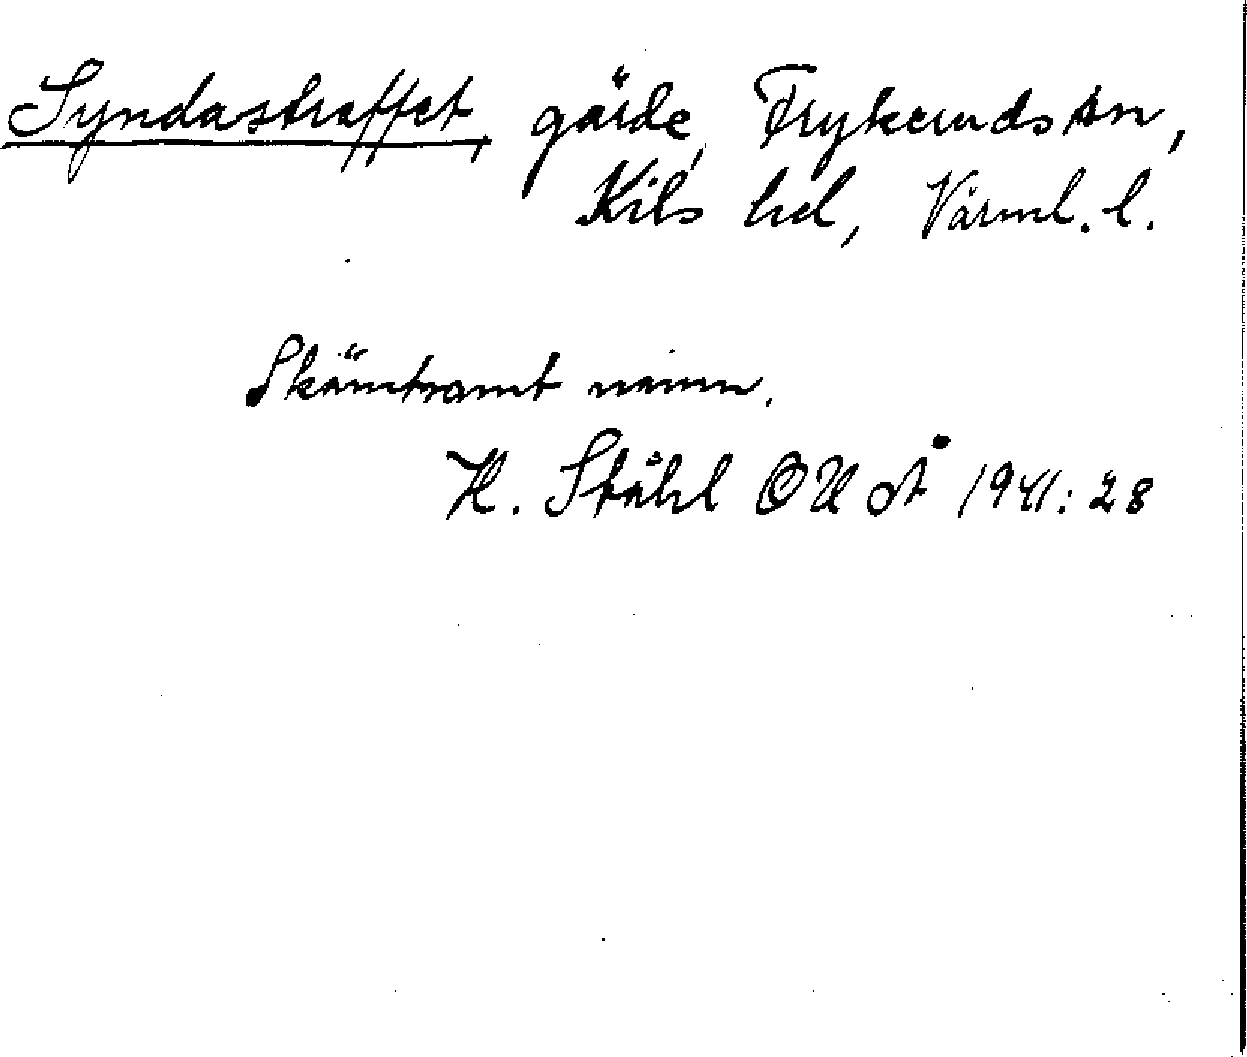 Syndastraffet, gärde, Frykeruds sn,
Kils hd, Värml. l.
Skämtsamt namn.
H. Ståhl OUÅ 1941: 28